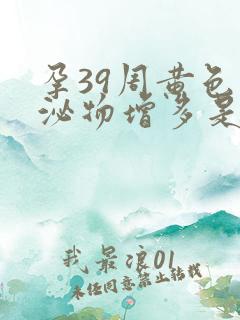 孕39周黄色
泌物增多是
我最浪01
未经同意禁止转载